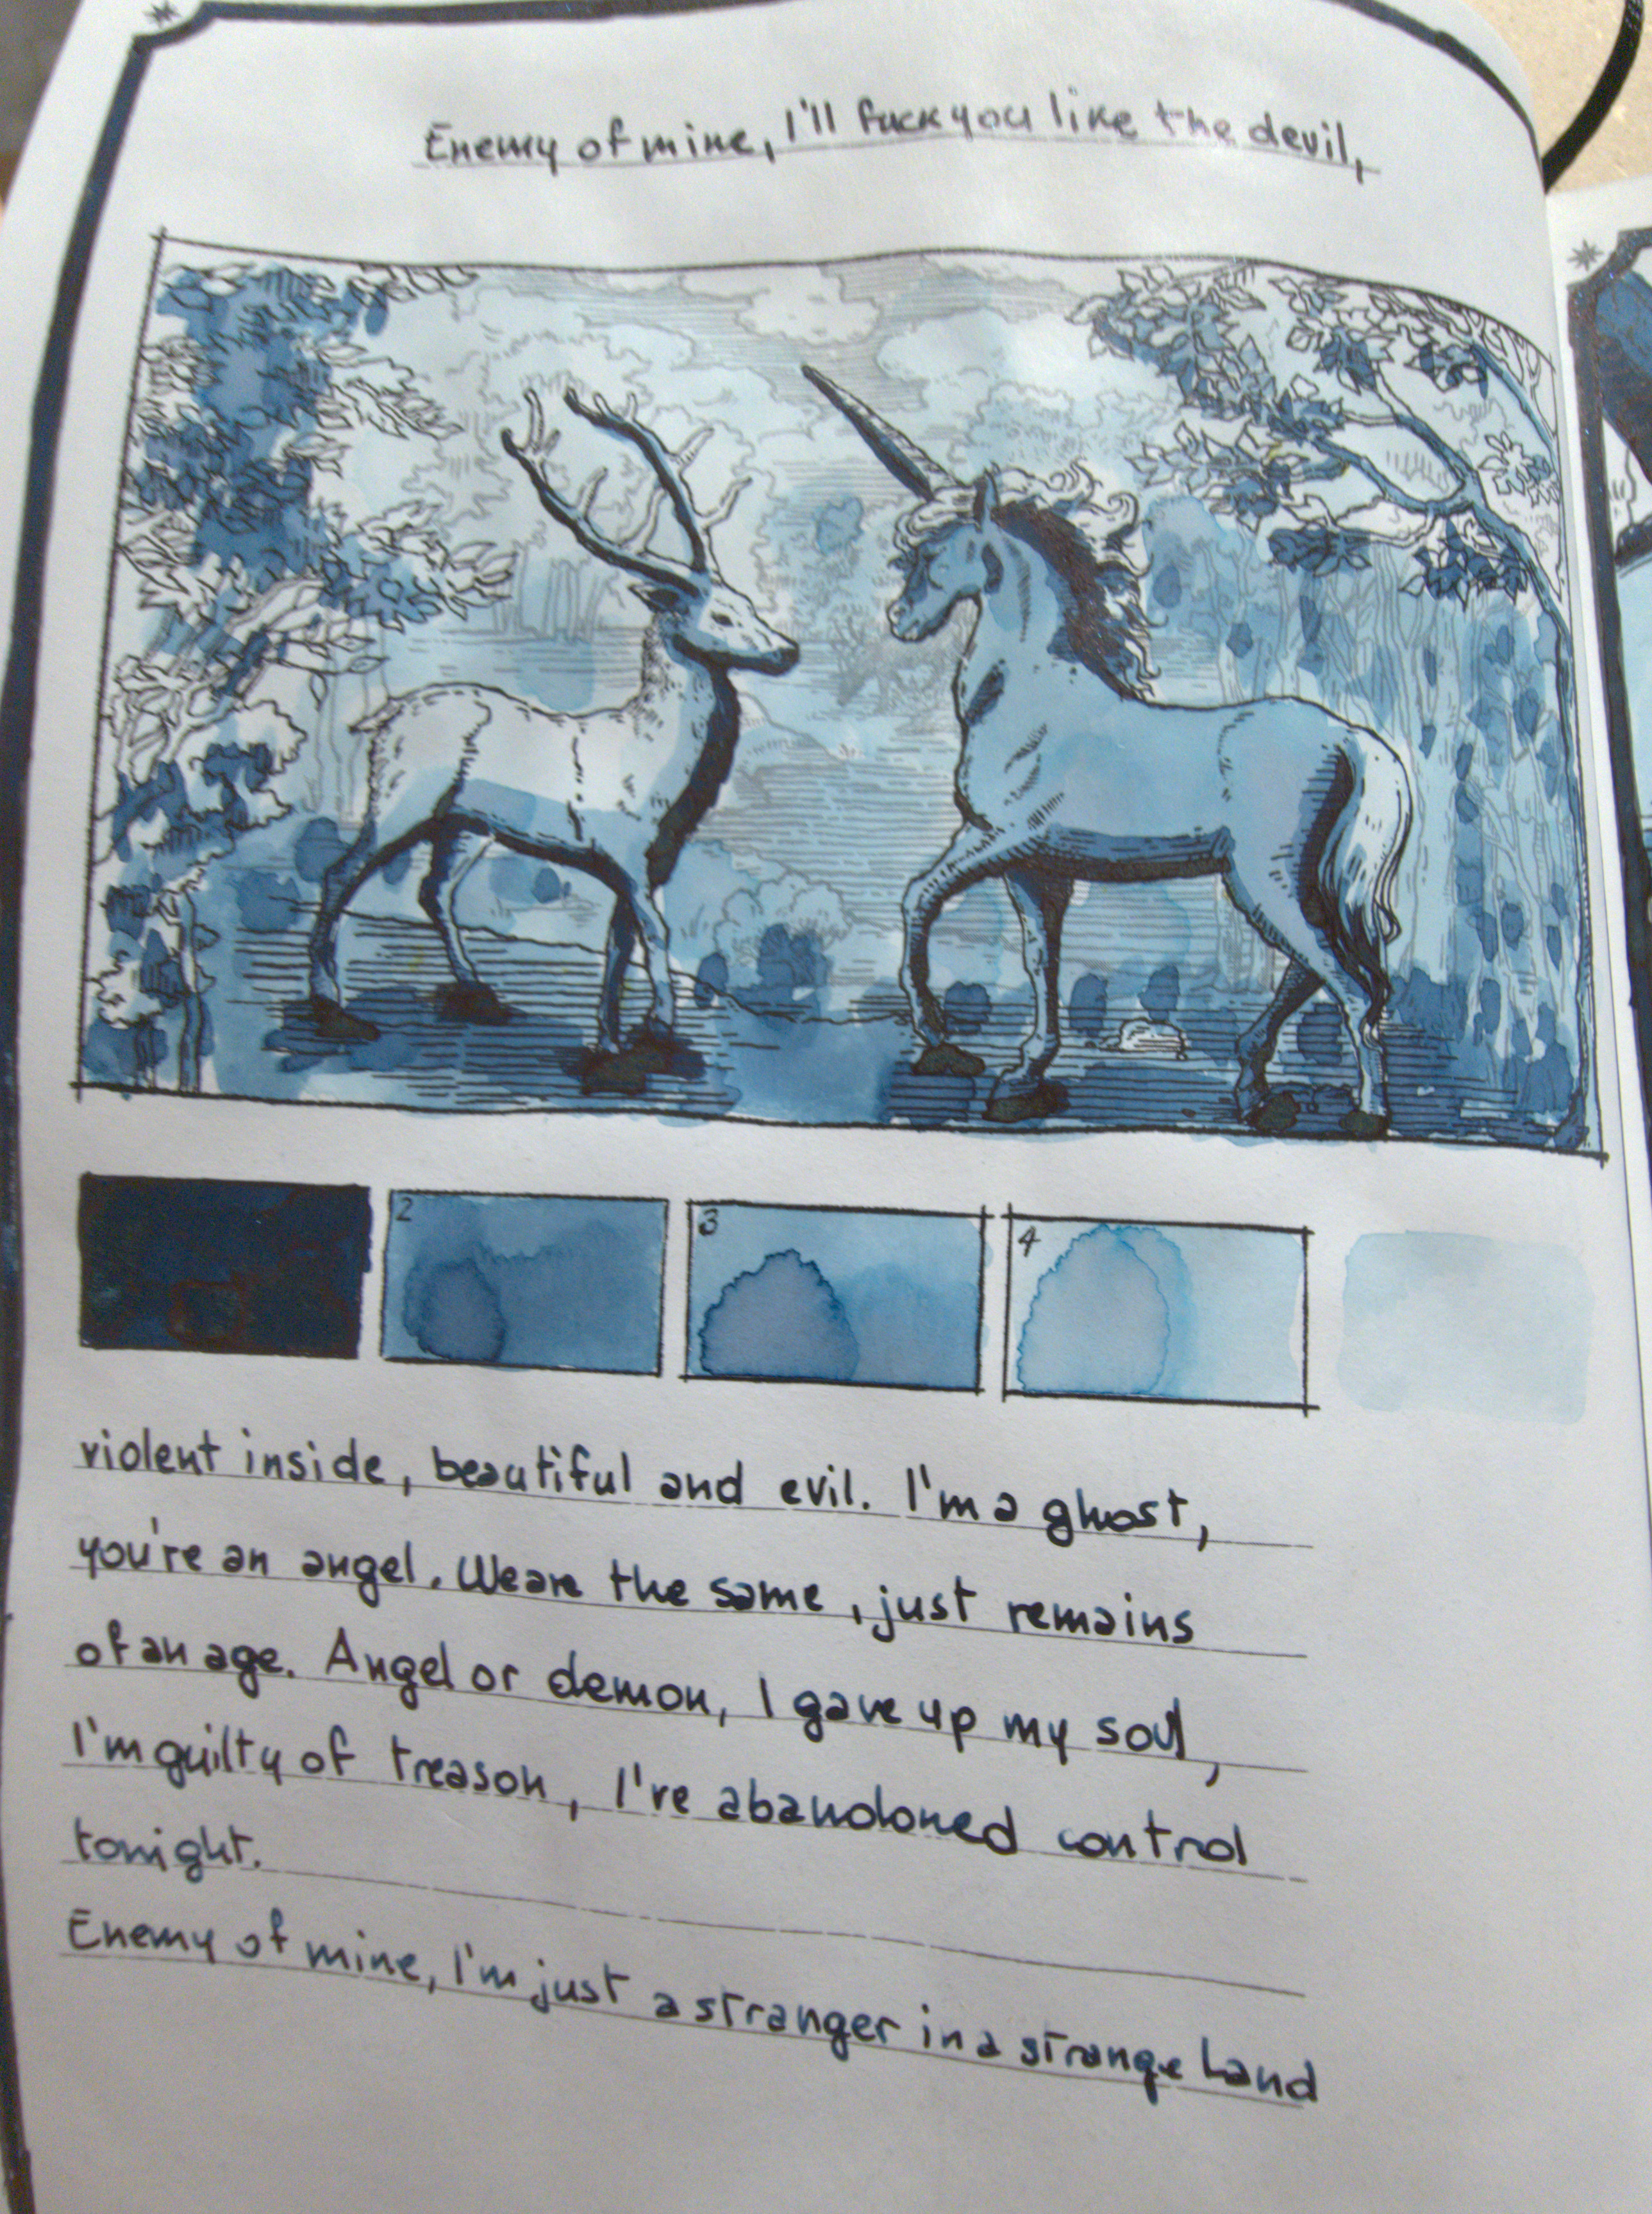 Enemy of mine, I'll fuck you like the devil,
2 3 4
violent inside, beautiful and evil. I'm a ghost,
you're an angel. We are the same, just remains
of an age. Angel or demon, I gave up my soul,
I'm guilty of treason, I've abandoned control
tonight.
Enemy of mine, I'm just a stranger in a strange land